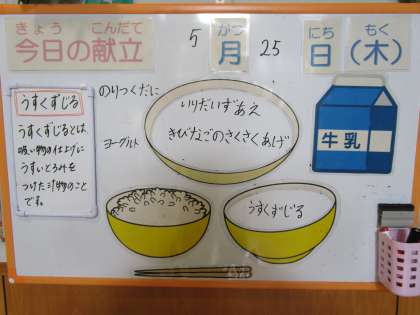 きょう こんだて
今日の献立
5 がつ 25 にち もく
月 日 (木)
うすくずじる
うすくずじるとは、
吸い物の仕上げに
うすいとろみを
つけた汁物のこと
です。
のりつくだに
ヨーグルト
いりだいずあえ
きびなごのさくさくあげ
牛乳
うすくずじる